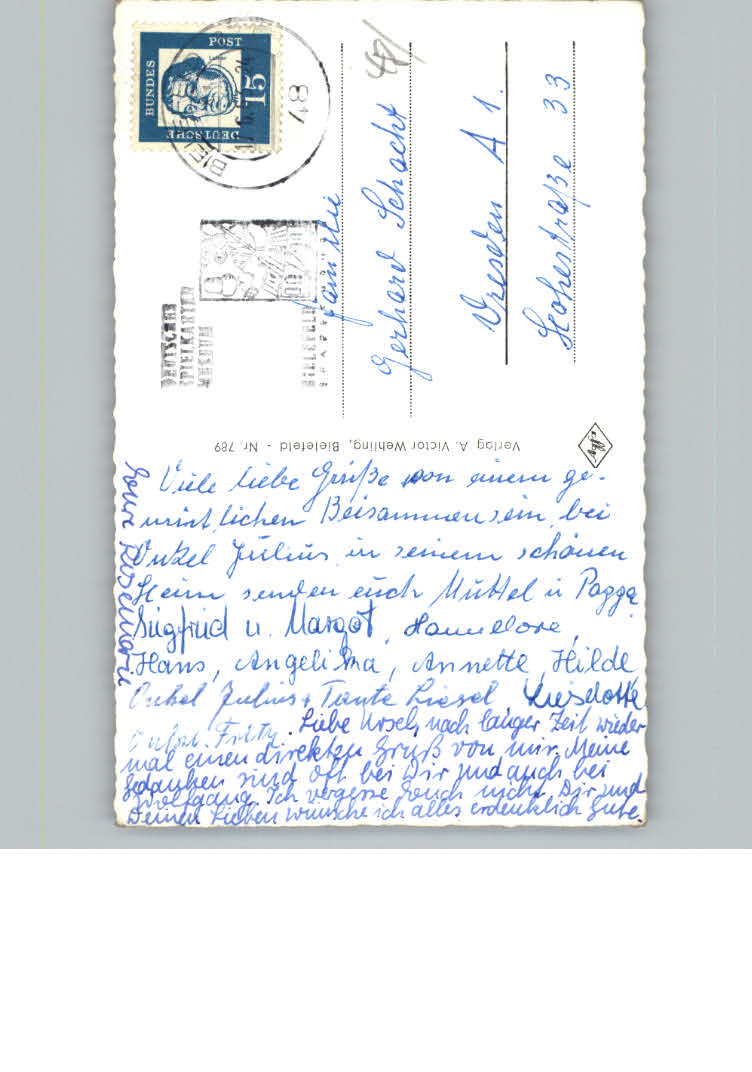 DEUTSCHE
BUNDES
POST
15
Luther
BIELEFELD
87
DEUTSCHES
SPIELKARTEN
MUSEUM
BIELEFELD
Familie
Gerhard Schacht
Dresden A 1.
Hohestraße 33
Verlag A. Victor Wehling, Bielefeld - Nr. 789
Viele liebe Grüße von einem ge-
mütlichen Beisammensein bei
Onkel Julius in seinem schönen
Heim senden euch Muttel u Pagga
Siegfried u. Margot, Hannelore,
Hans, Angelika, Annette, Hilde
Onkel Julius + Tante Liesel Lieselotte
Onkel Fritz. Liebe Ursel, nach langer Zeit wieder
mal einen direkten Gruß von mir. Meine
Gedanken sind oft bei Dir und auch bei
Wolfgang. Ich vergesse Euch nicht. Dir und
Deinen Lieben wünsche ich alles erdenklich Gute.
Eure Rosemarie